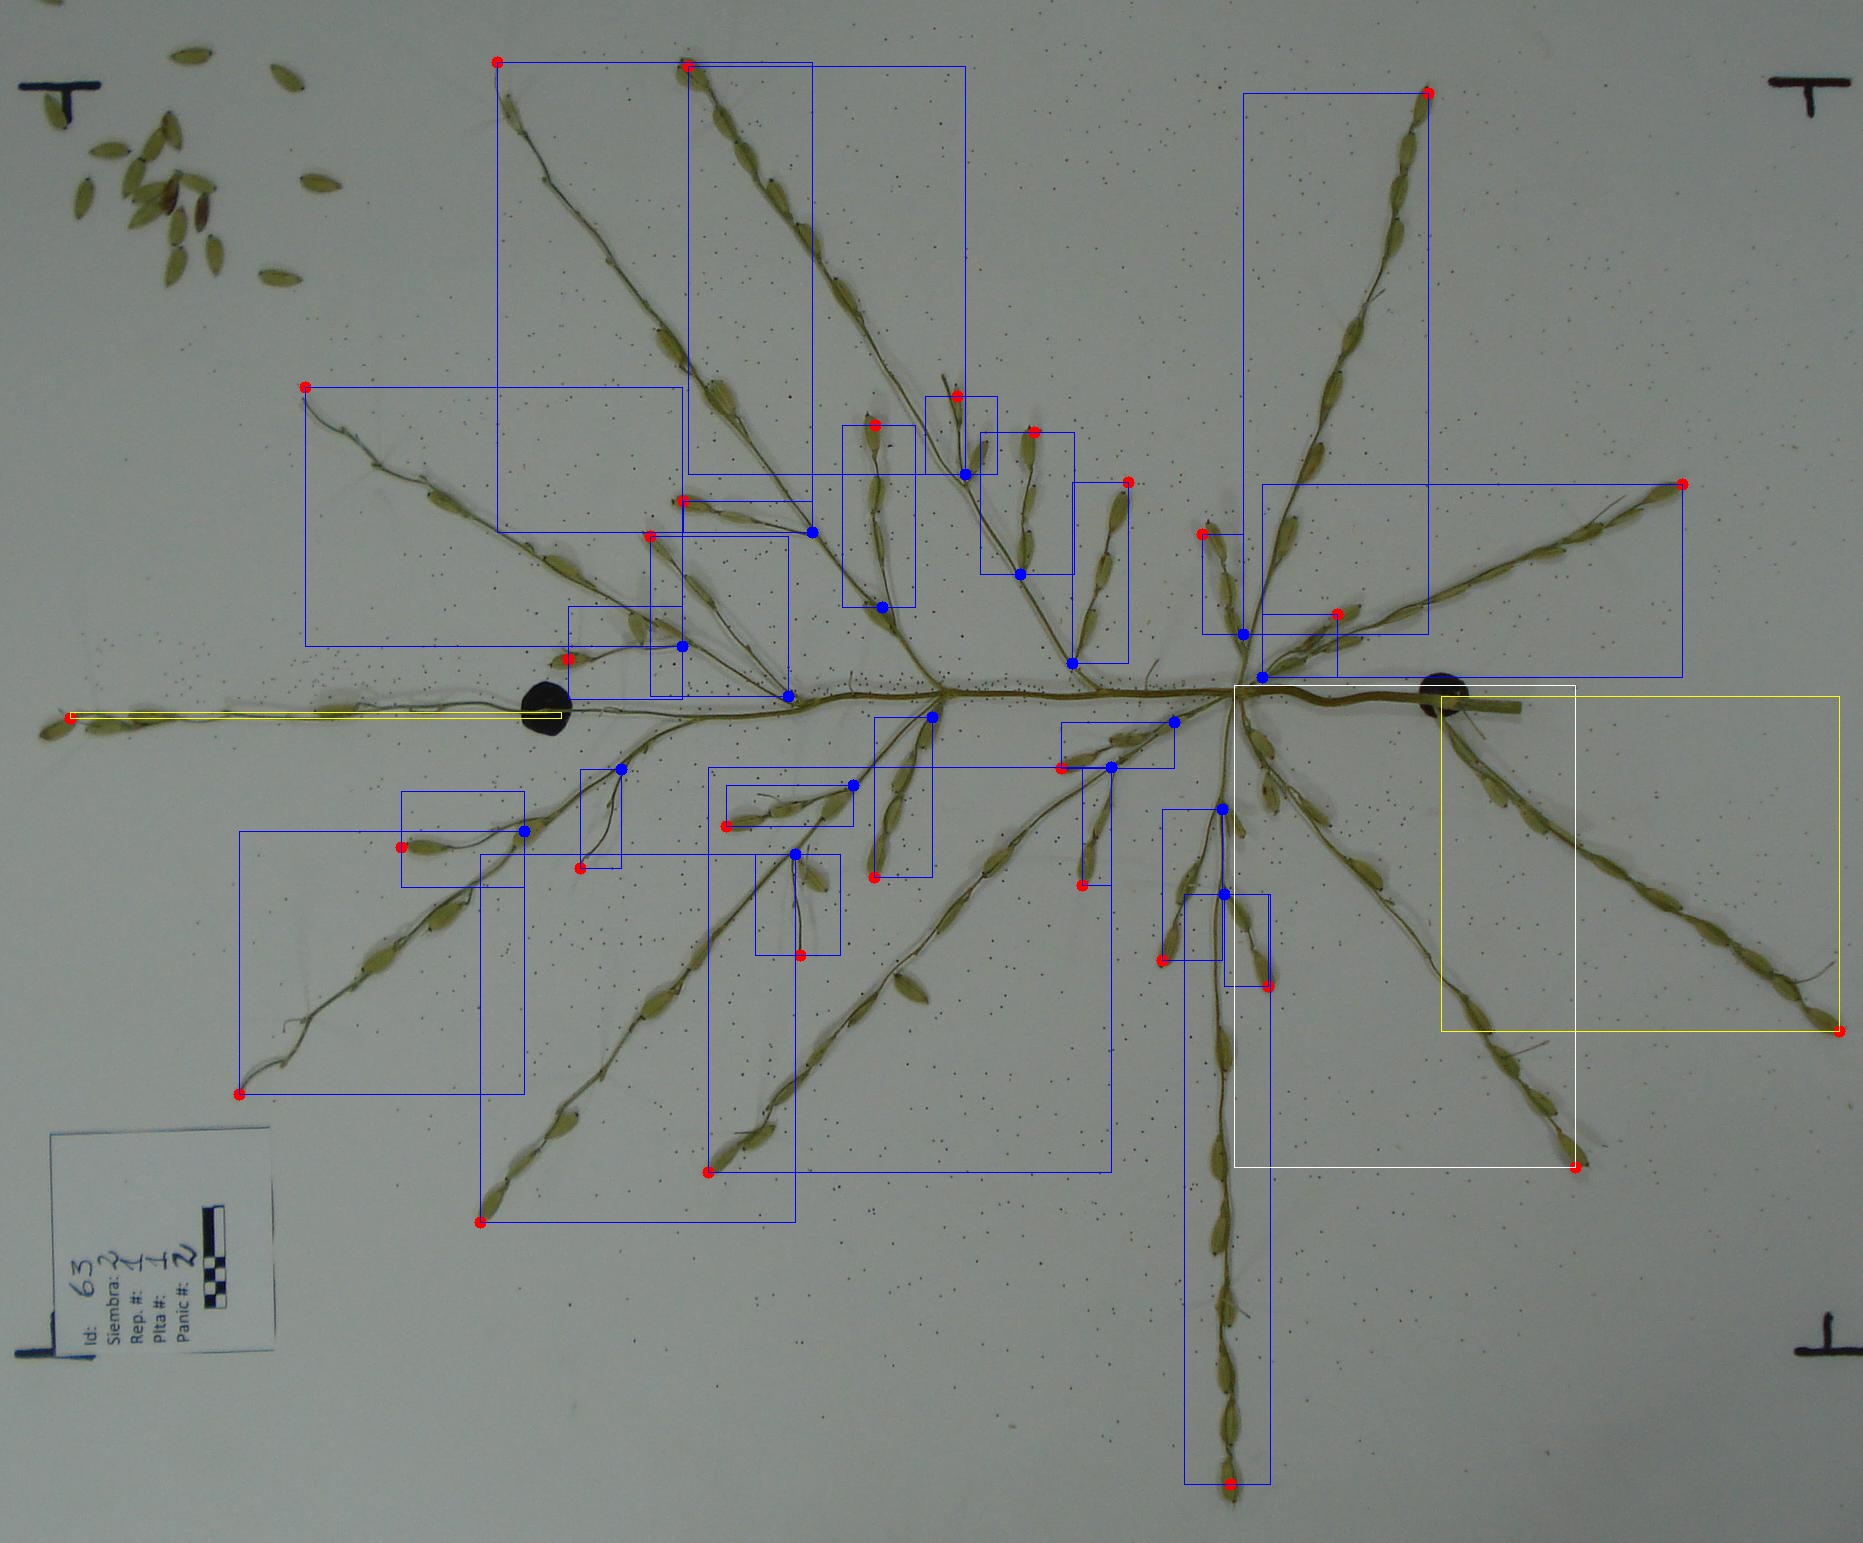 Id: 63
Siembra: 2
Rep. #: 1
Plta #: 1
Panic #: 2